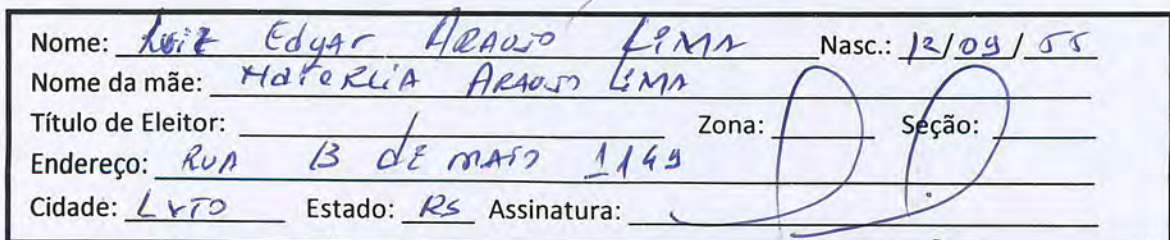 Nome: Luiz Edgar ARAUJO LIMA Nasc.: 12/09/55
Nome da mãe: ARAUJO LIMA
Título de Eleitor: Zona: Seção:
Endereço: RUA 13 de MAIO 1149
Cidade: LVTO Estado: RS Assinatura: